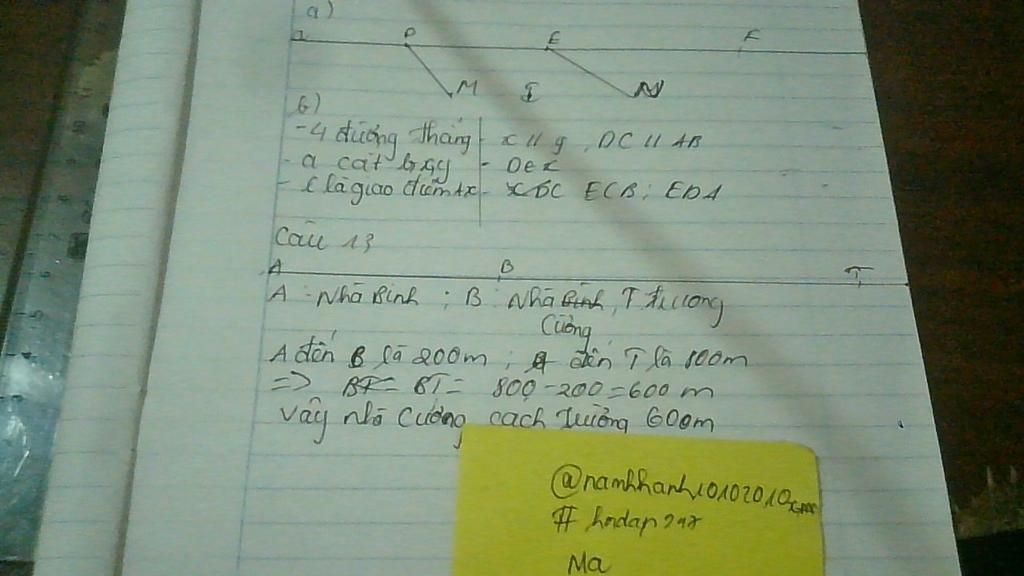 a)
P E F
M I N
b)
- 4 đường thẳng - x // y , DC // AB
- a cắt - DE
- E là giao điểm - ECB ; EDA
Câu 13
A B T
A : Nhà Bình ; B : Nhà Bình , T trường
Cường
A đến B là 200m ; A đến T là 800m
=> BT = BT = 800 - 200 = 600 m
Vậy nhà Cường cách trường 600m
@namkhanh10102010
# hoidap247
Ma